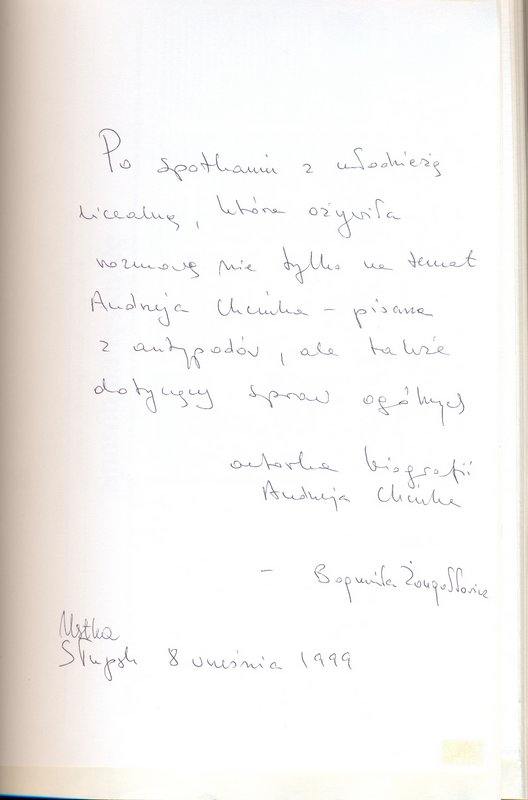 Po spotkaniu z młodzieżą
licealną, która ożywiła
rozmowę nie tylko na temat
Andrzeja Chciuka – pisarza
z antypodów, ale także
dotyczący spraw ogólnych
autorka biografii
Andrzeja Chciuka
– Bogumiła Żongołłowicz
Ustka
Słupsk 8 września 1999